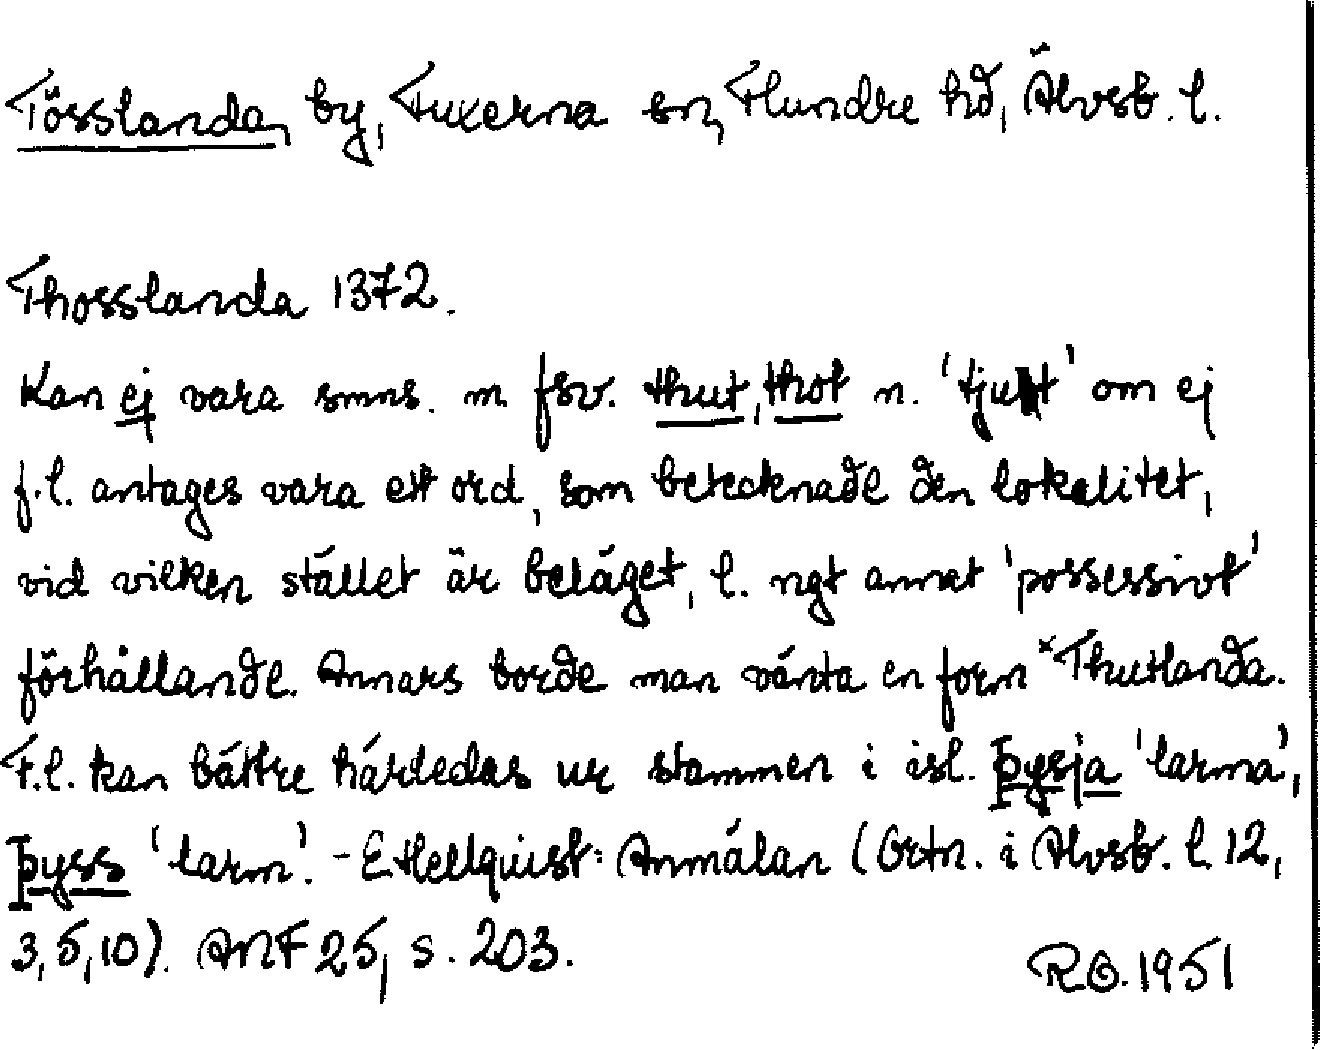 Tösslanda, by, Fuxerna sn, Flundre hd, Älvsb. l.
Thosslanda 1372.
Kan ej vara smns. m. fsv. thut, thot n. 'tjut' om ej
f.l. antages vara ett ord, som betecknade den lokalitet,
vid vilken stället är beläget, l. ngt annat 'possessivt'
förhållande. Annars borde man vänta en form *Thutlanda.
F.l. kan bättre härledas ur stammen i isl. þysja 'larma',
þyss 'larm'. - E Hellquist: Anmälan (Ortn. i Älvsb. l. 12,
3, 5, 10). ANF 25, s. 203.
RO. 1951